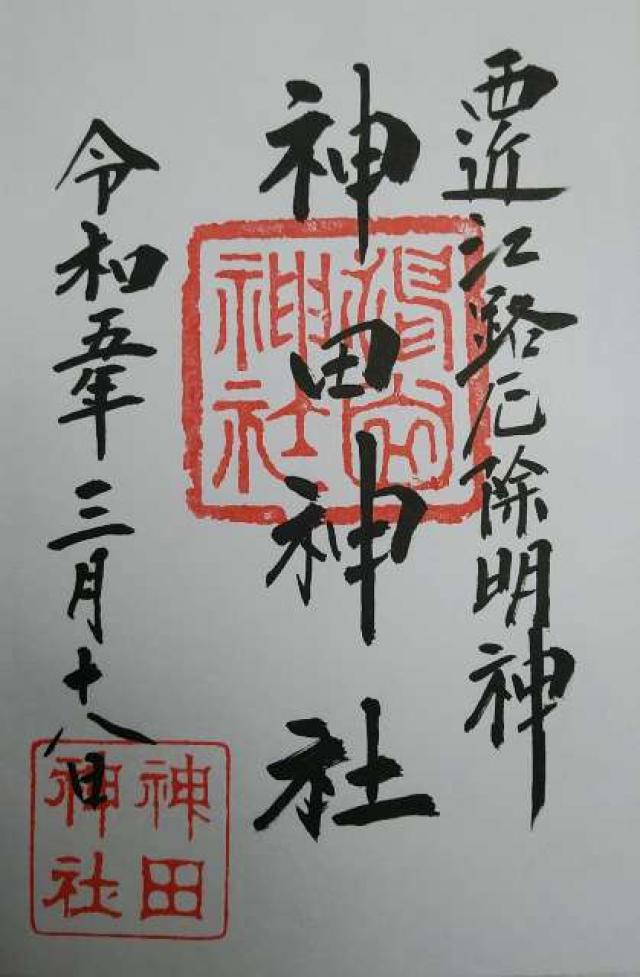 西近江路厄除明神
神田神社
令和五年三月十八日
神田
神社